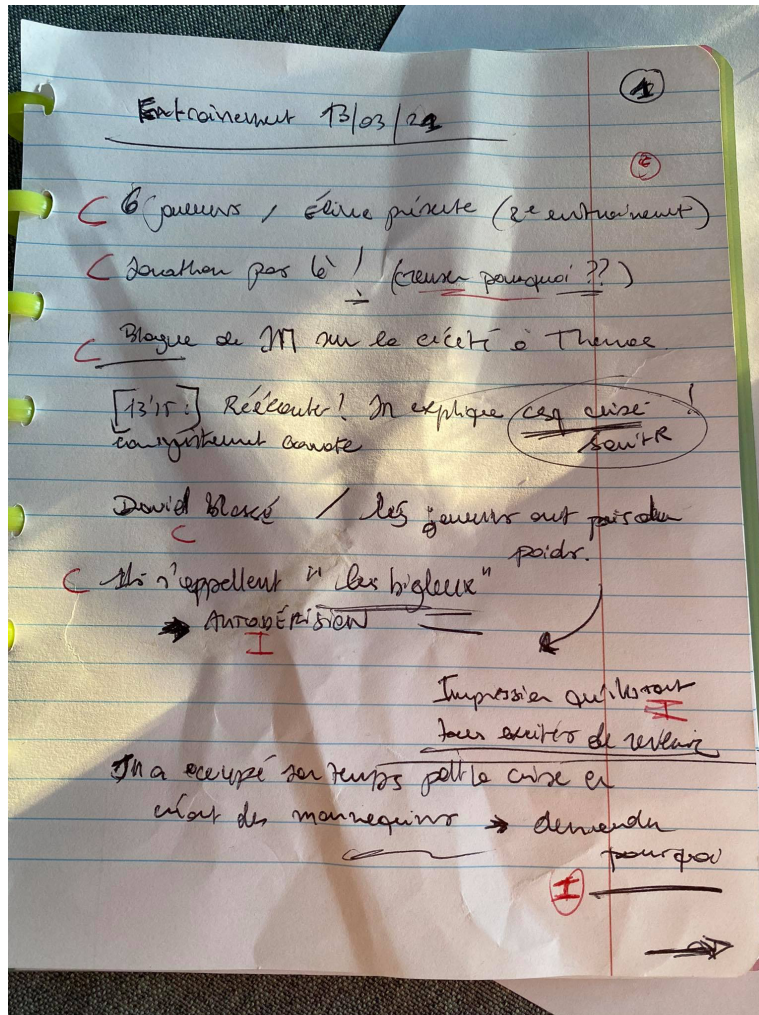 1
Entrainement 13/03/21
C 6 joueurs / Éline présente (2e entrainement)
C Jonathan pas là ! (creuser pourquoi ??)
C Blague de M sur la cécité à Thomas
[13'15 :] Réécouter ! M explique csq crise !
sanitR
David blessé / les joueurs ont pris du
C
poids.
C Ils s'appellent "les bigleux"
→ AUTODÉRISION
I
Impression qu'ils sont
I
tous excités de revenir
M a occupé son temps pdt la crise en
créant des mannequins → demander
pourquoi
I